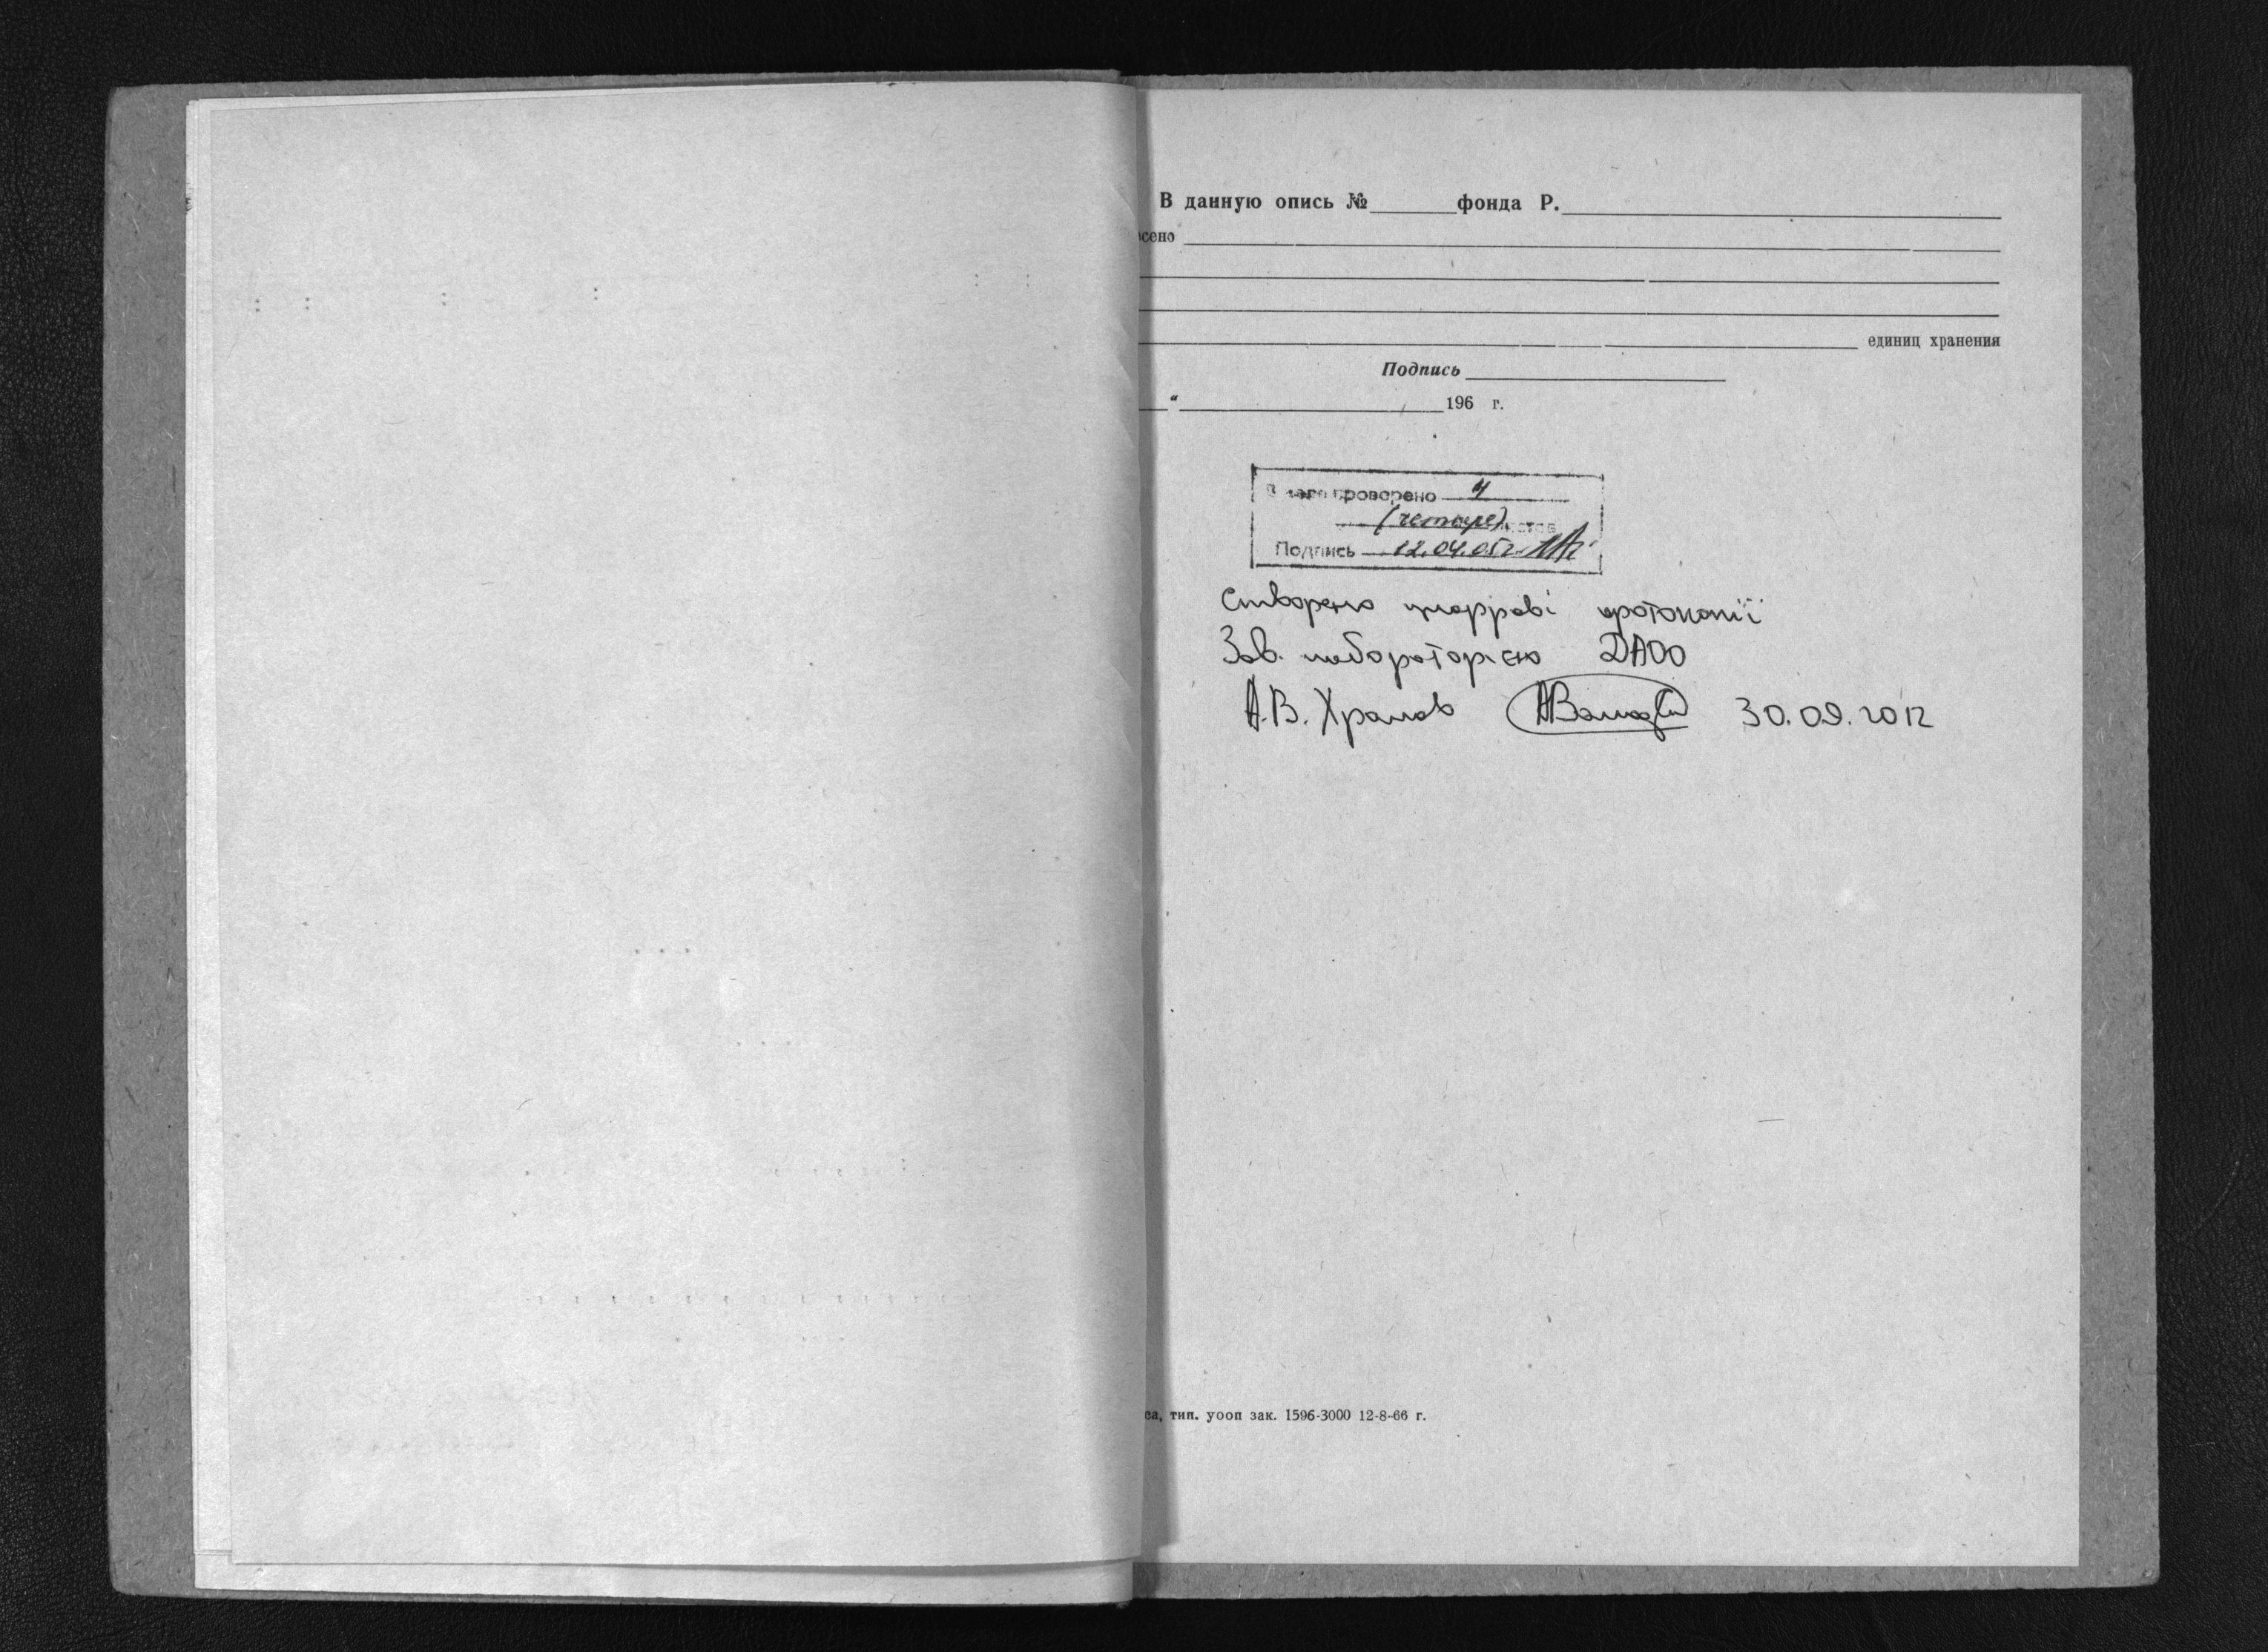 В данную опись № фонда Р.
сено
единиц хранения
Подпись
" 196 г.
В деле проверено 4
(четыре) листов
Подпись 12.04.05г.
Створено цифрові фотокопії
Зав. лабораторією ДАОО
А.В. Храмов 30.09.2012
са, тип. уооп зак. 1596-3000 12-8-66 г.